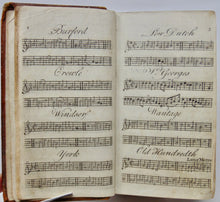 Burford
Crowle
Windsor
York
Low Dutch
St. Georges
Wantage
Old Hundredth